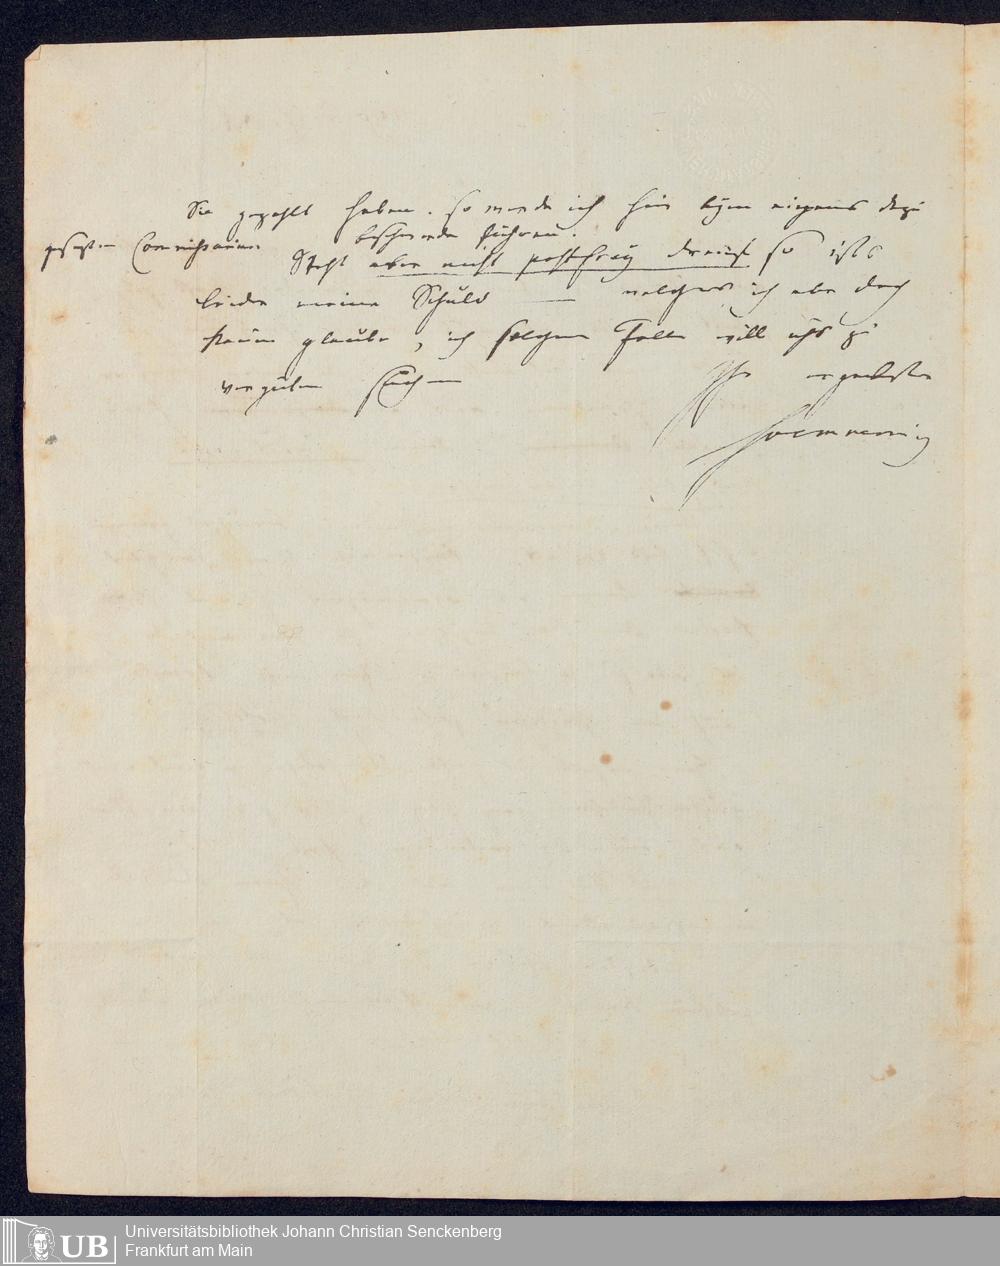 Sie gezahlt haben. so werde ich hier beym eigens dazu
gesezten Commissarius beschwerde führen.
Steht aber nicht postfrey drauf so ists
leider meine Schuld — welches ich aber doch
kaum glaube, in solchem Falle will ichs zu
vergüten suchen
Ihr ergebenster
Soemmerring
UB
Universitätsbibliothek Johann Christian Senckenberg
Frankfurt am Main